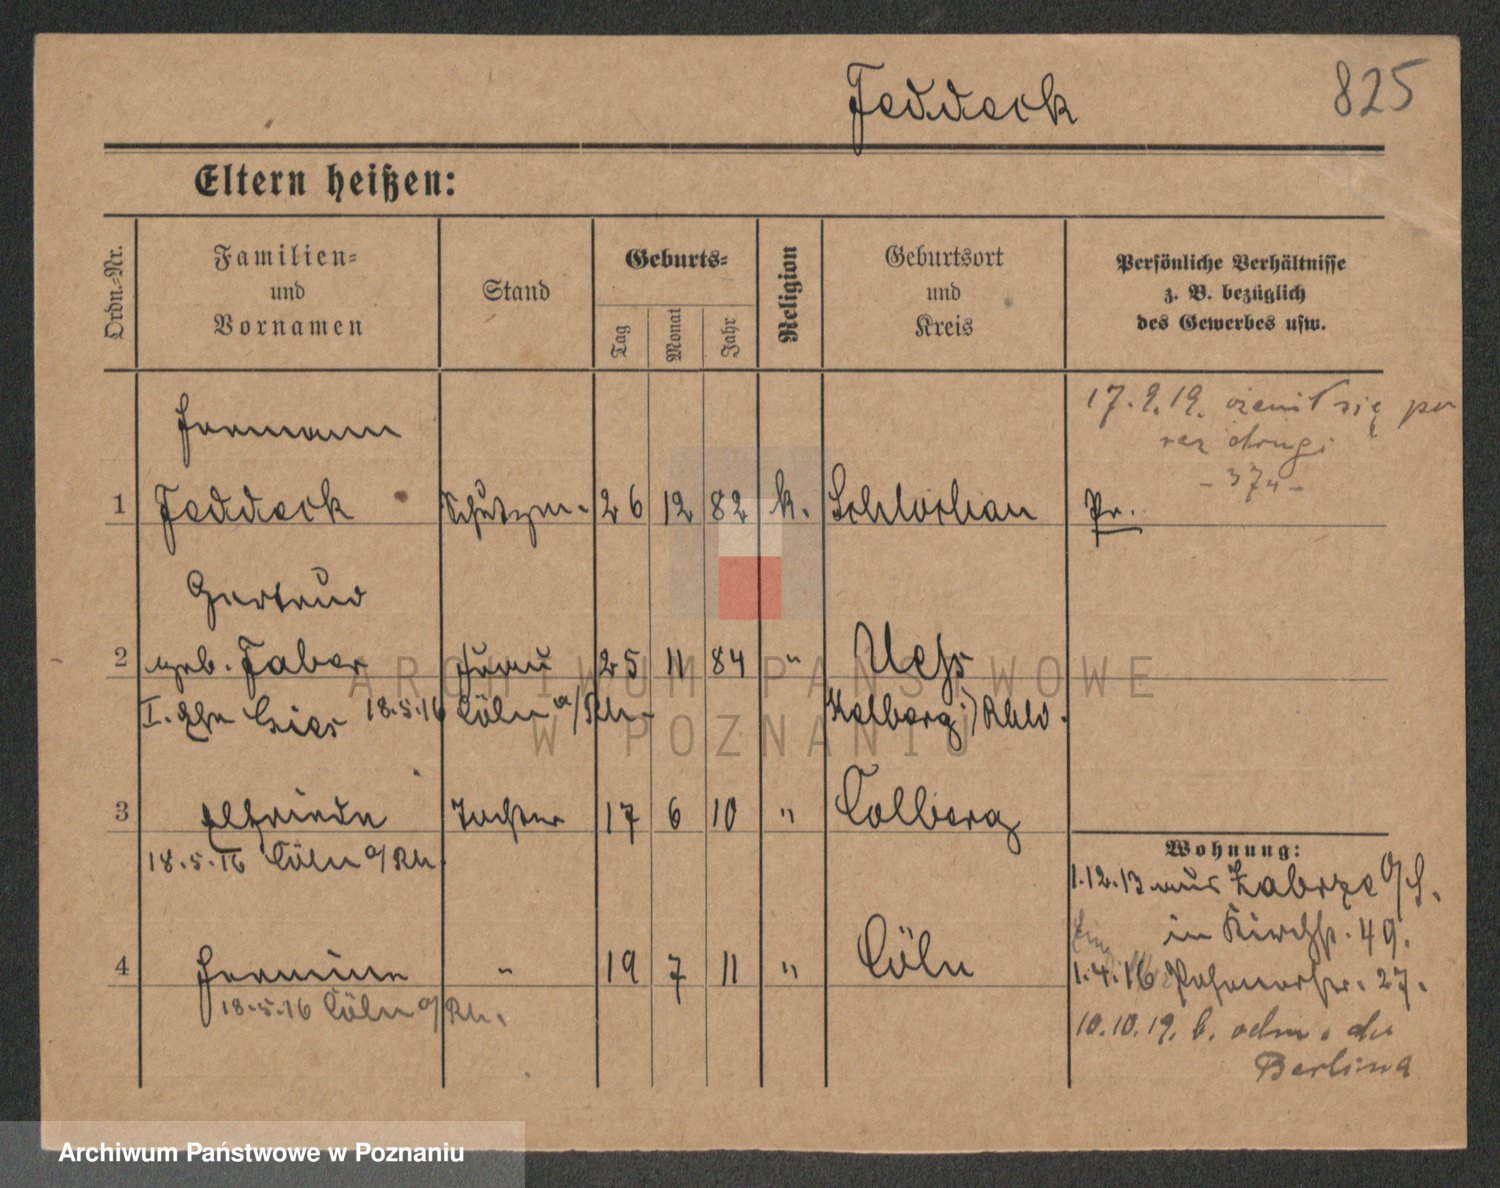 Feddeck
825
Eltern heißen:
Ordn.-Nr.
Familien-
und
Vornamen
Stand
Geburts-
Tag
Monat
Jahr
Religion
Geburtsort
und
Kreis
Persönliche Verhältnisse
z. B. bezüglich
des Gewerbes usw.
17.9.19. ożenił się po
raz drugi
Hermann
1 Feddeck 26 12 82 k. Schlochau Pr.
Gertrud
2 geb. Faber Frau 25 11 84 " Uess
I. Ehe 18.5.16 Cöln a/Rh.
3 Elfriede Tochter 17 6 10 " Colberg
18.5.16 Cöln a/Rh.
4 Hermine " 19 7 11 " Cöln
18.5.16 Cöln a/Rh.
Wohnung:
1.12.13 aus Zabrze O/S.
in Kirchstr. 49.
1.4.16 Posenerstr. 27.
10.10.19. b. odm. do
Berlina
ARCHIWUM PAŃSTWOWE
W POZNANIU
Archiwum Państwowe w Poznaniu